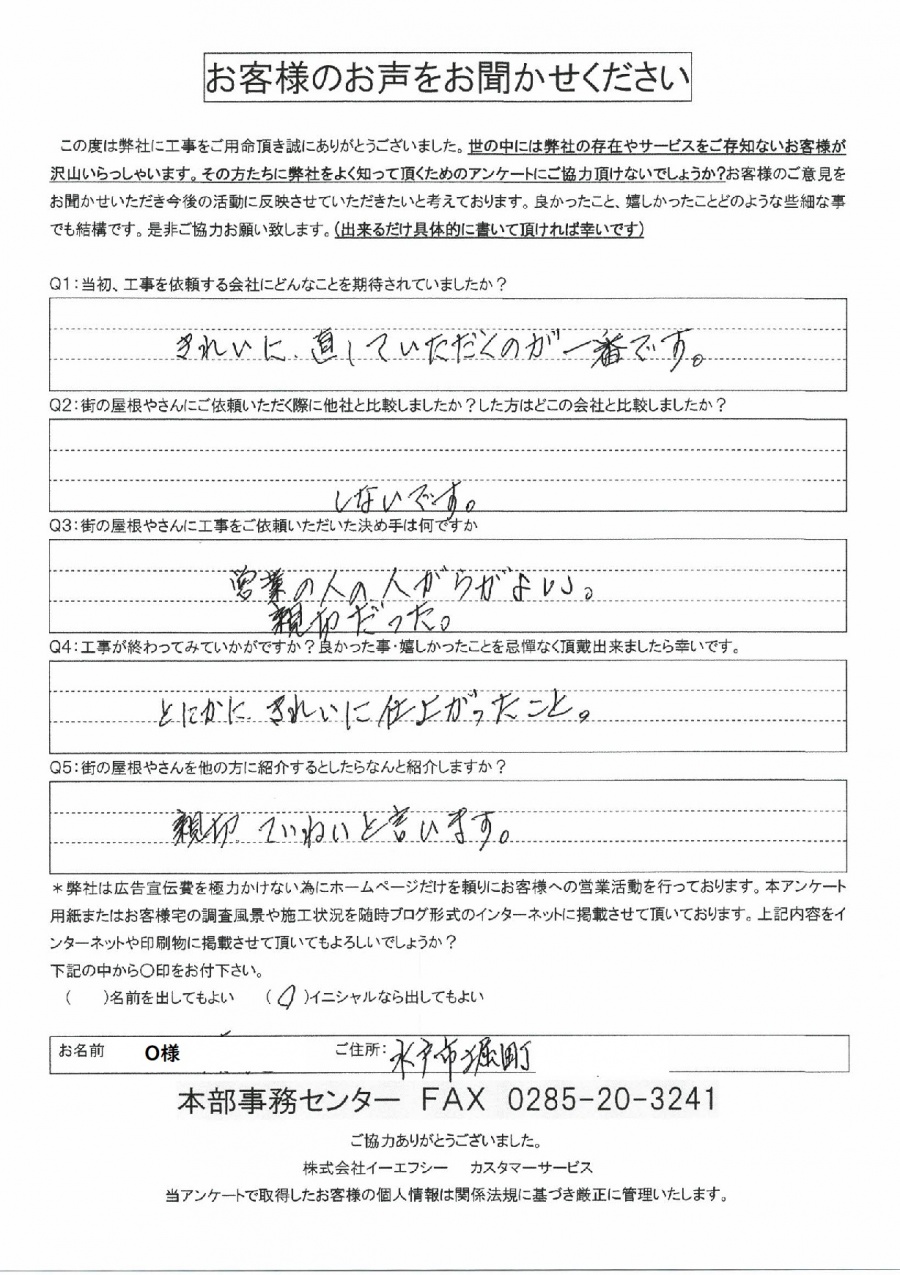 お客様のお声をお聞かせください
この度は弊社に工事をご用命頂き誠にありがとうございました。世の中には弊社の存在やサービスをご存知ないお客様が
沢山いらっしゃいます。その方たちに弊社をよく知って頂くためのアンケートにご協力頂けないでしょうか？お客様のご意見を
お聞かせいただき今後の活動に反映させていただきたいと考えております。良かったこと、嬉しかったことどのような些細な事
でも結構です。是非ご協力お願い致します。（出来るだけ具体的に書いて頂ければ幸いです）
Q1：当初、工事を依頼する会社にどんなことを期待されていましたか？
きれいに、直していただくのが一番です。
Q2：街の屋根やさんにご依頼いただく際に他社と比較しましたか？した方はどこの会社と比較しましたか？
しないです。
Q3：街の屋根やさんに工事をご依頼いただいた決め手は何ですか
営業の人の人がらがよい。
親切だった。
Q4：工事が終わってみていかがですか？良かった事・嬉しかったことを忌憚なく頂戴出来ましたら幸いです。
とにかに、きれいに仕上がったこと。
Q5：街の屋根やさんを他の方に紹介するとしたらなんと紹介しますか？
親切、ていねいと言います。
＊弊社は広告宣伝費を極力かけない為にホームページだけを頼りにお客様への営業活動を行っております。本アンケート
用紙またはお客様宅の調査風景や施工状況を随時ブログ形式のインターネットに掲載させて頂いております。上記内容をイ
ンターネットや印刷物に掲載させて頂いてもよろしいでしょうか？
下記の中から〇印をお付下さい。
（　）名前を出してもよい　（〇）イニシャルなら出してもよい
お名前　O様　ご住所：水戸市堀町
本部事務センター　FAX　0285-20-3241
ご協力ありがとうございました。
株式会社イーエフシー　カスタマーサービス
当アンケートで取得したお客様の個人情報は関係法規に基づき厳正に管理いたします。